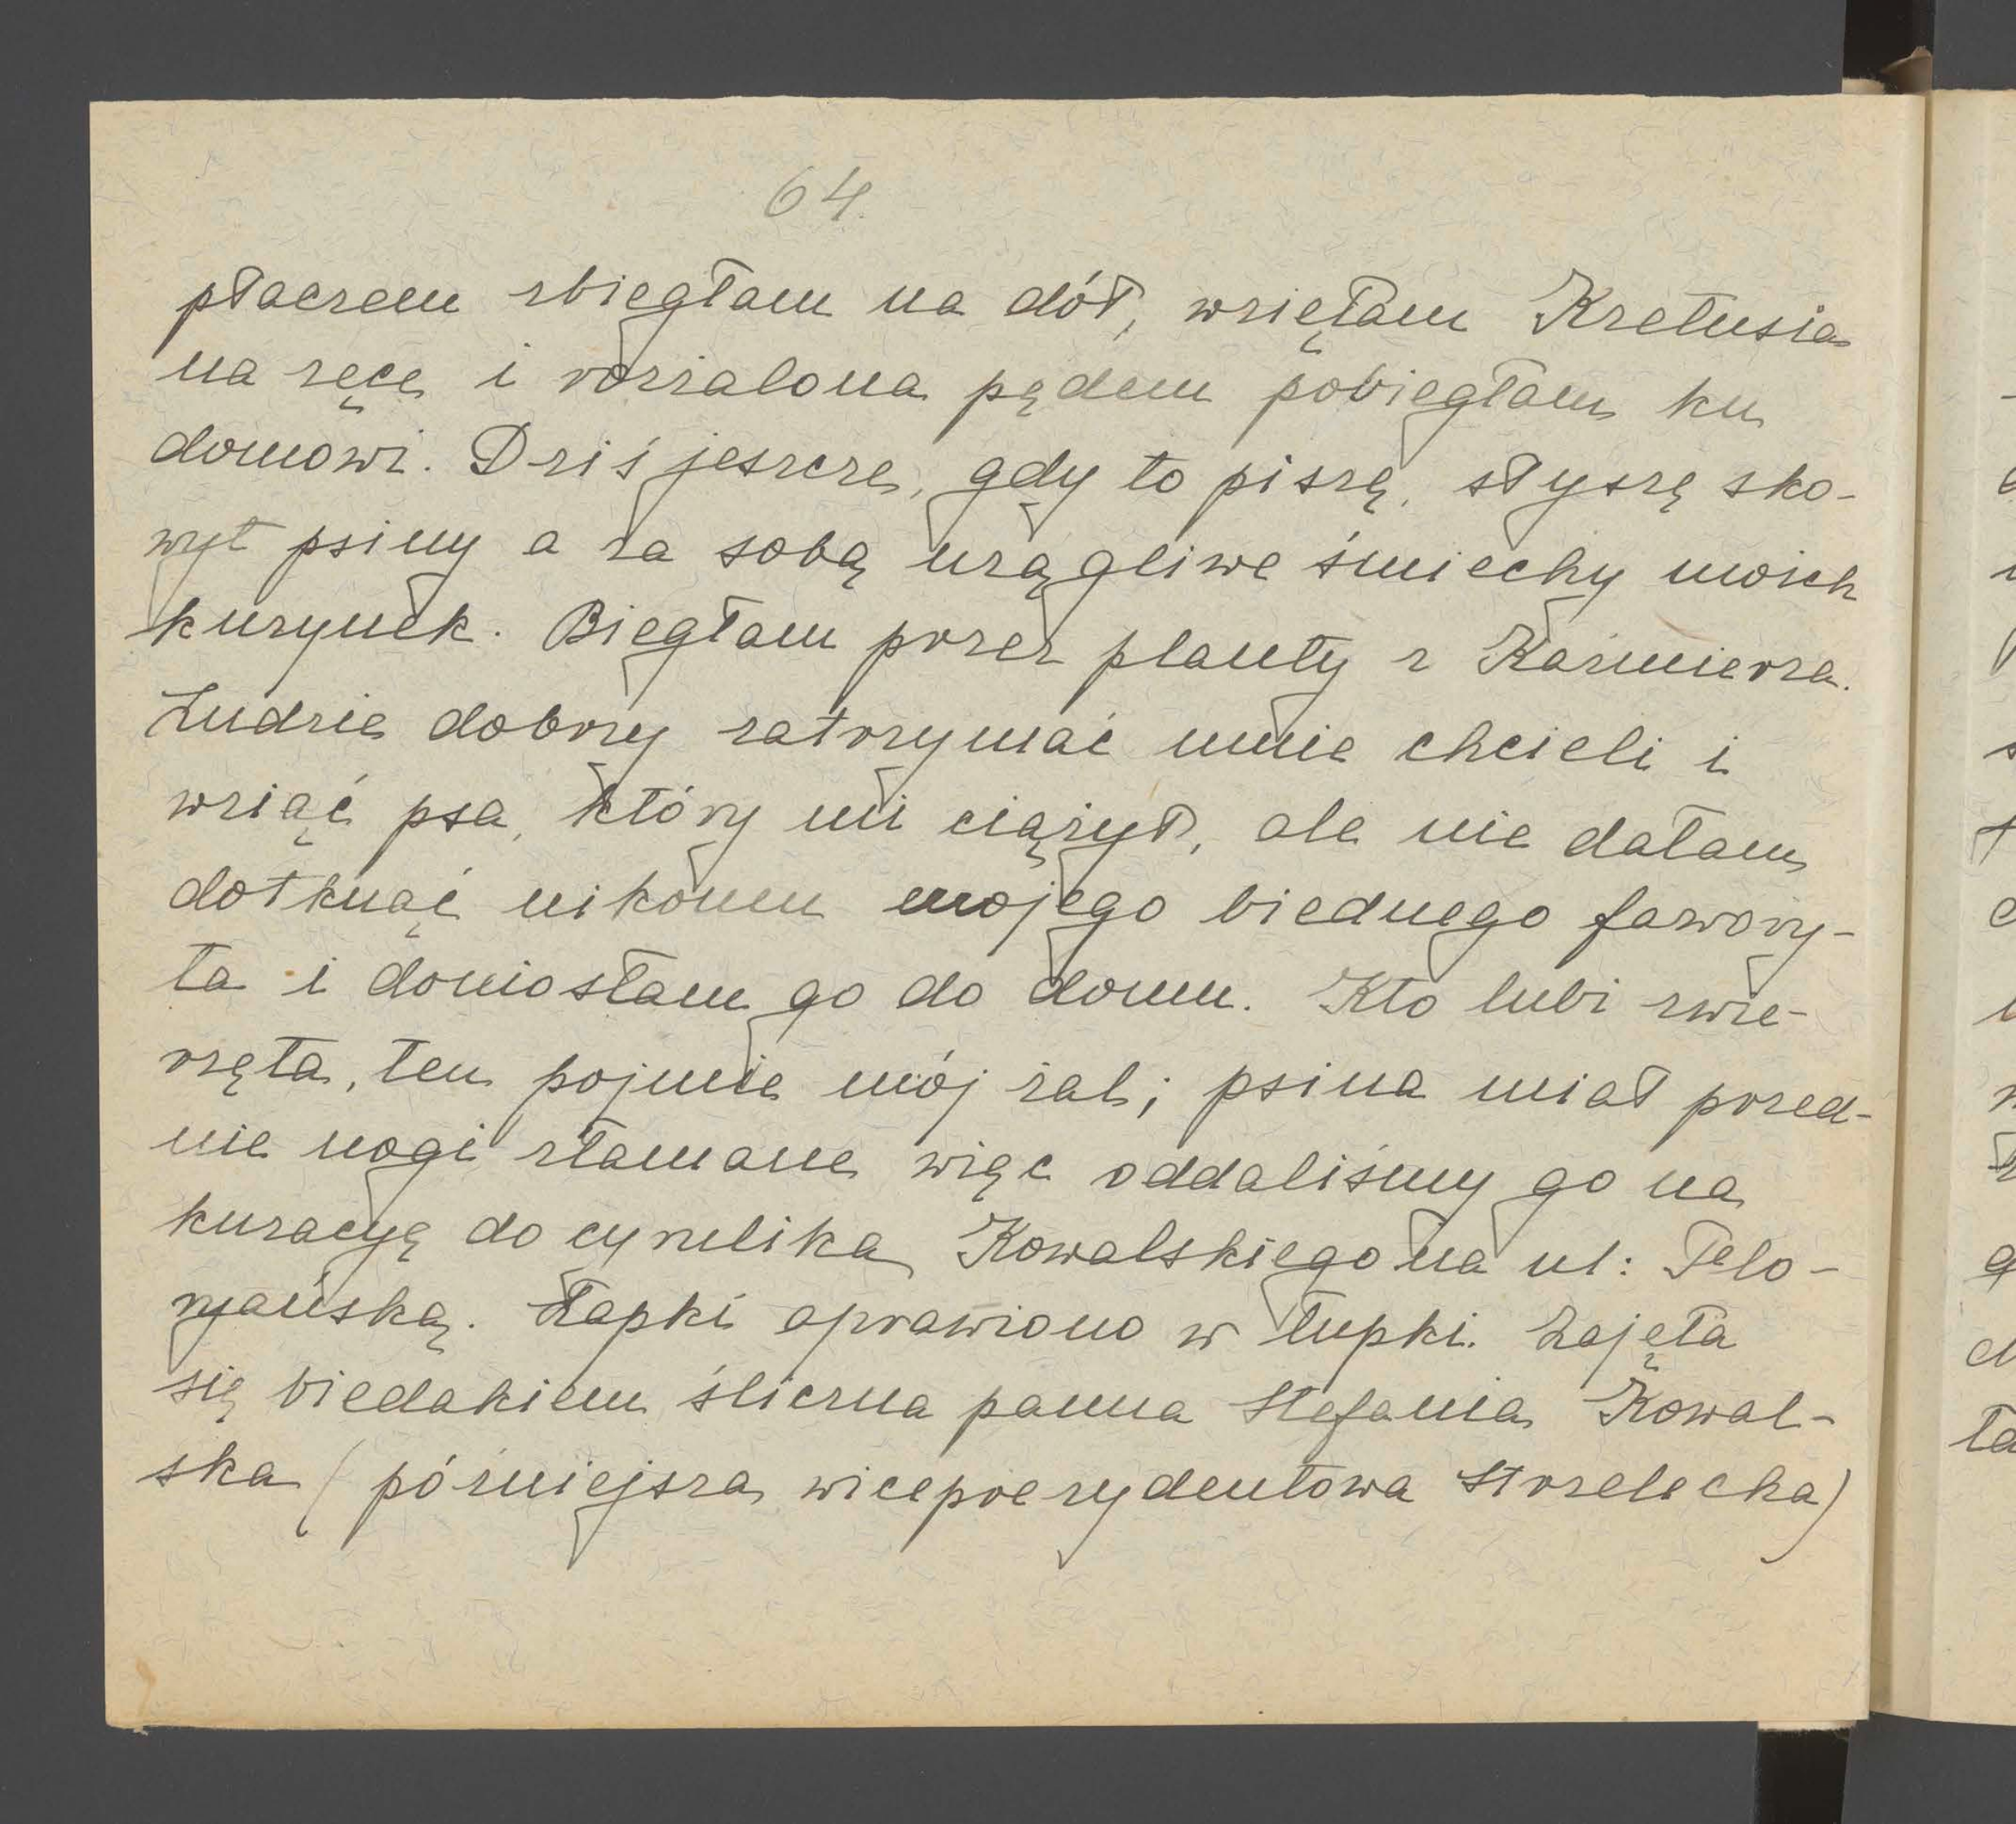 64.
płaczem zbiegłam na dół, wzięłam Kretusia
na ręce i rozżalona pędem pobiegłam ku
domowi. Dziś jeszcze, gdy to piszę, słyszę sko-
wyt psiny a za sobą urągliwe śmiechy moich
kuzynek. Biegłam przez planty z Kaźmierza.
Ludzie dobrzy zatrzymać mnie chcieli i
wziąć psa, który mi ciążył, ale nie dałam
dotknąć nikomu mojego biednego fawory-
ta i doniosłam go do domu. Kto lubi zwie-
rzęta, ten pojmie mój żal; psina miał przed-
nie nogi złamane więc oddaliśmy go na
kuracyę do cyrulika Kowalskiego na ul: Flo-
ryańską. Łapki oprawiono w łupki. Zajęła
się biedakiem śliczna panna Stefania Kowal-
ska (późniejsza wiceprezydentowa Strzelecka)